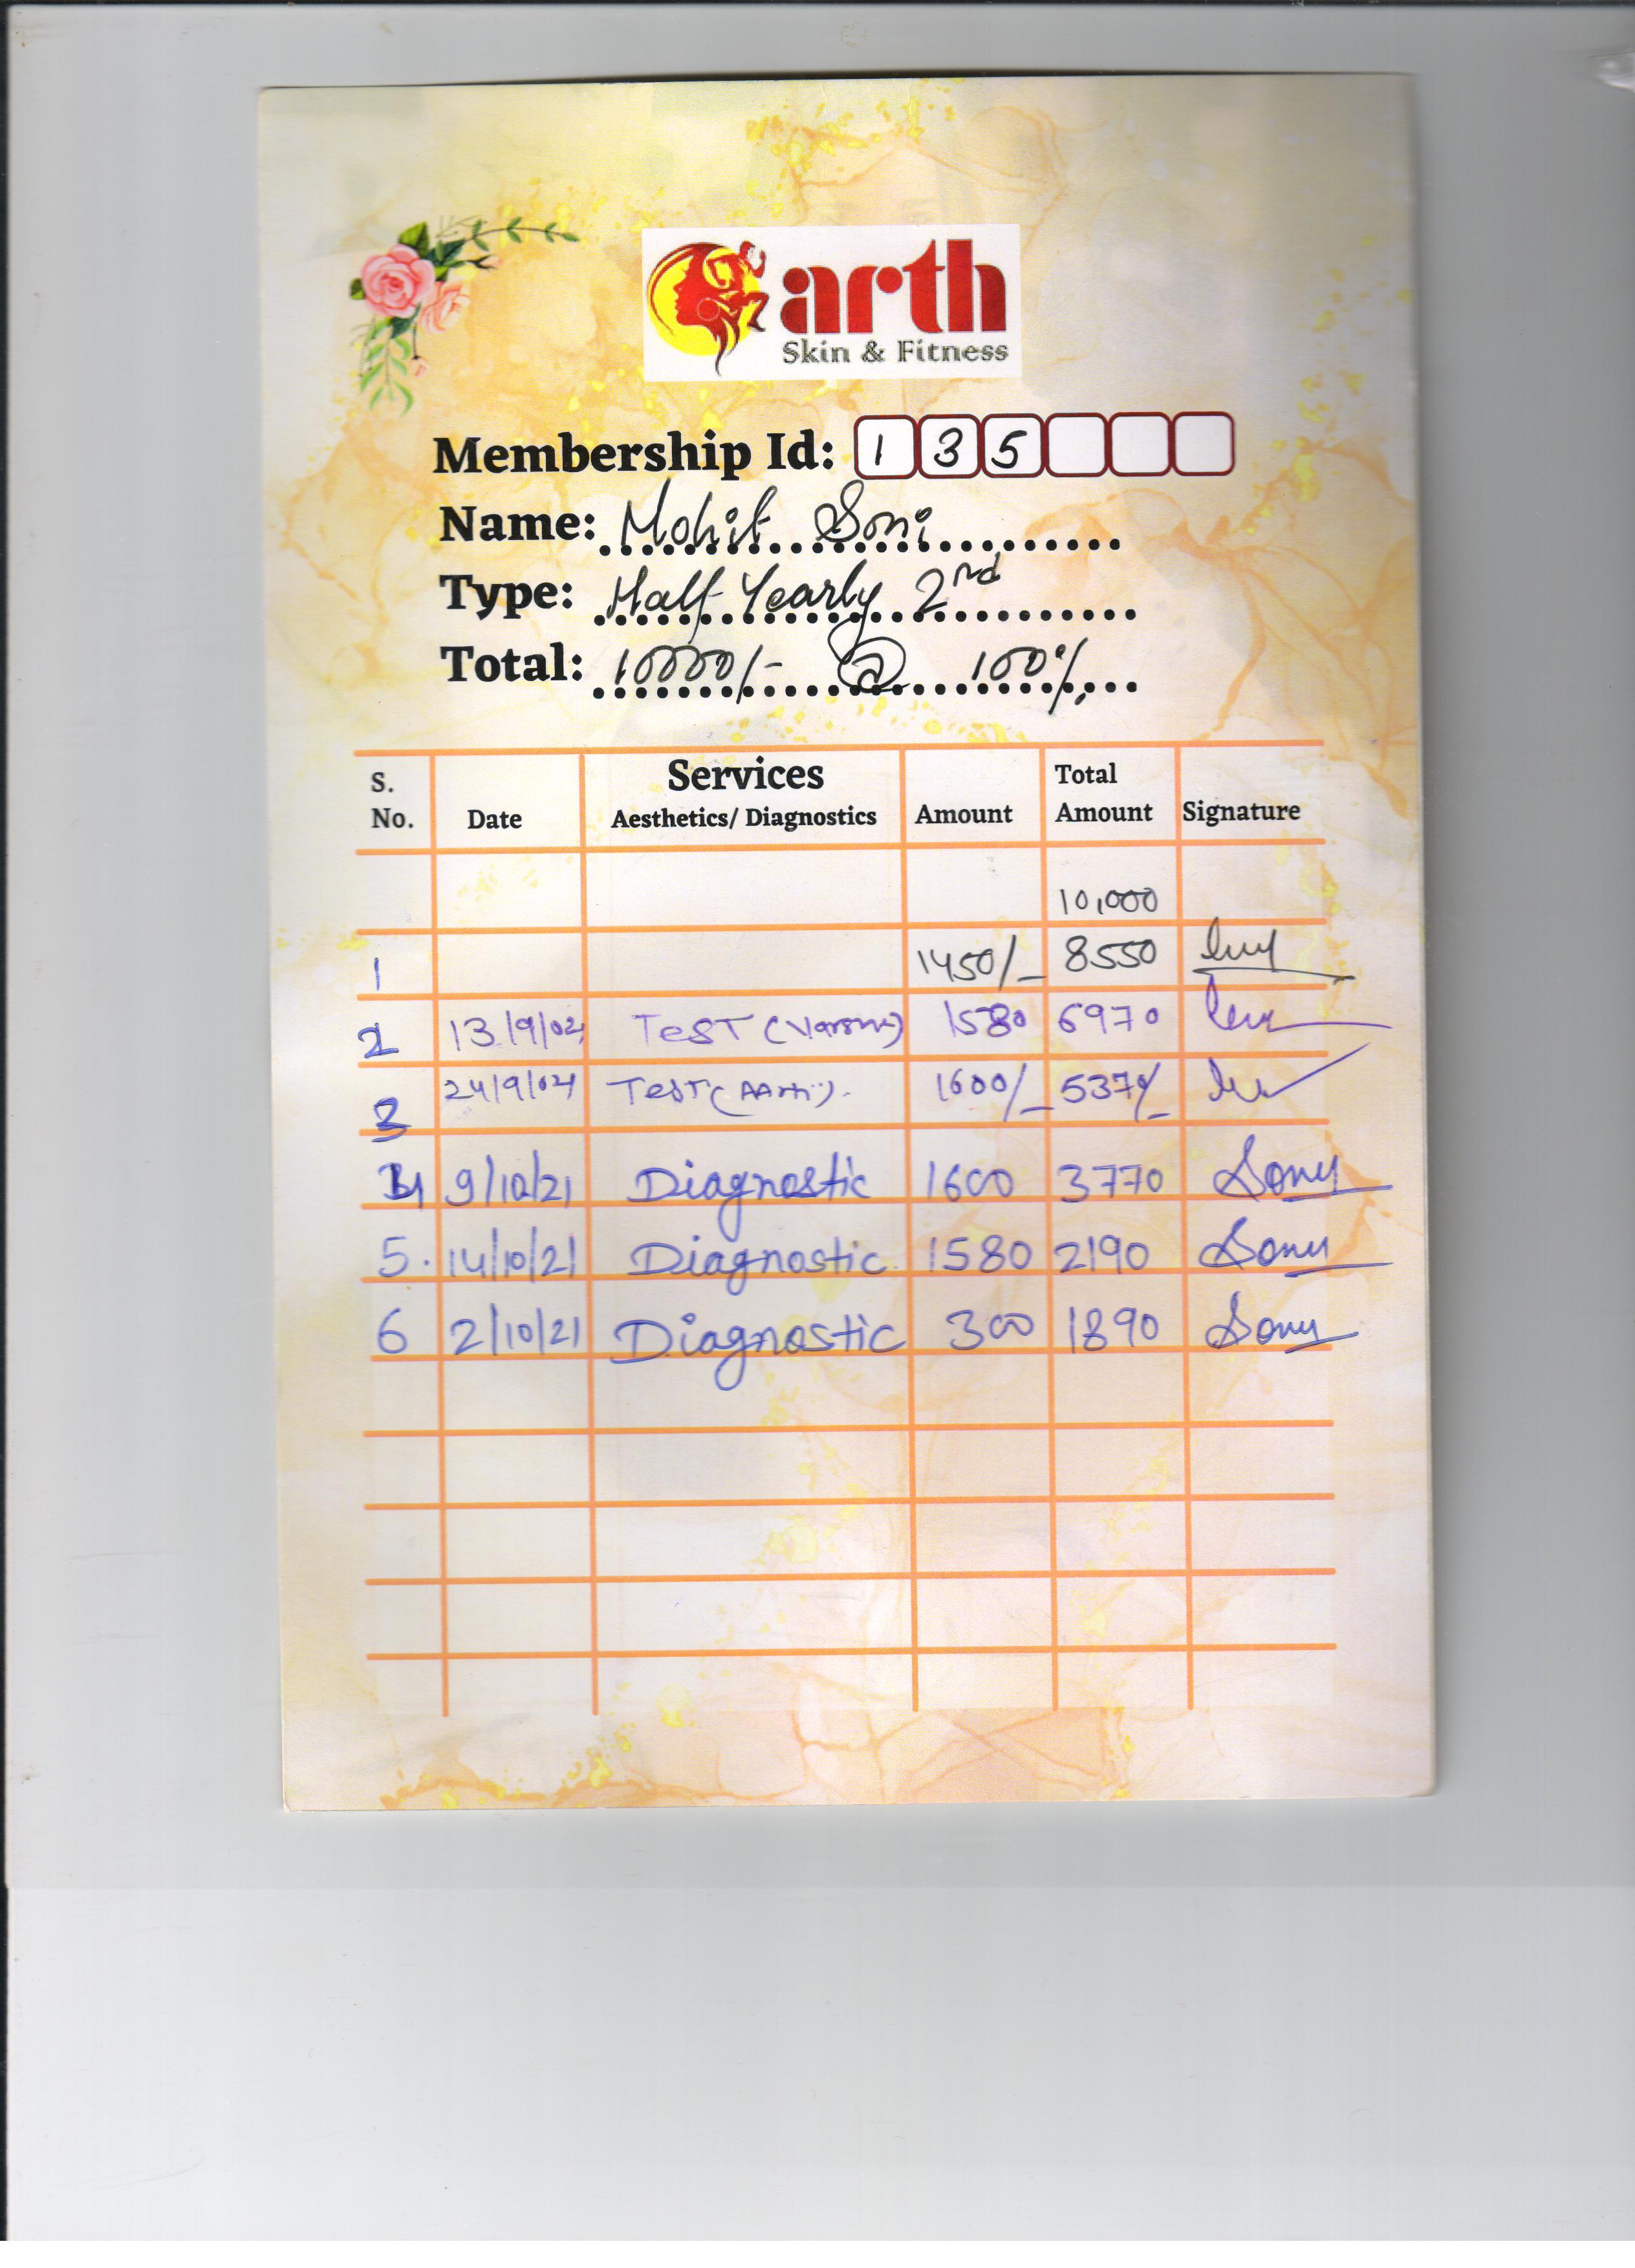 arth
Skin & Fitness
Membership Id: 1 3 5
Name: Mohit Soni
Type: Half Yearly 2nd
Total: 10000/- @ 100%
S. No. Date Services Aesthetics/ Diagnostics Amount Total Amount Signature
10,000
1 1450/- 8550
2 13/9/ TEST ( 1580 6970
3 24/9/ TEST (AArti). 1600/- 5370/-
4 9/10/21 Diagnostic 1600 3770 Sonu
5. 14/10/21 Diagnostic. 1580 2190 Sonu
6 2/10/21 Diagnostic 300 1890 Sonu